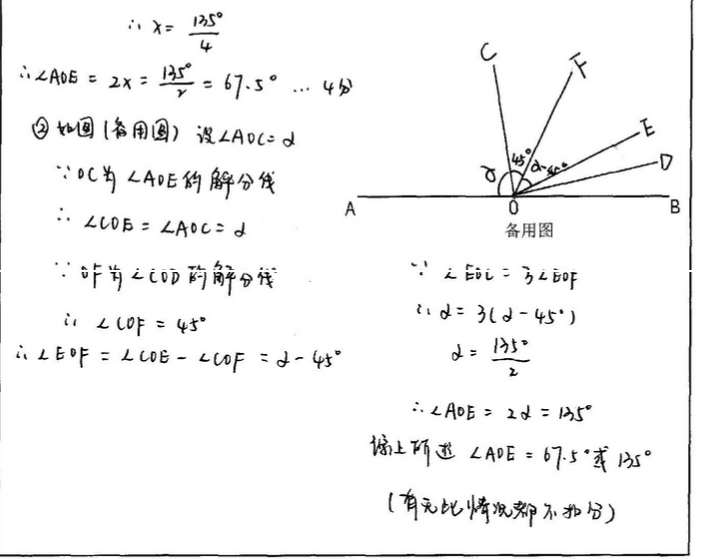 ∴ x = 135°/4
∴∠AOE = 2x = 135°/2 = 67.5° … 4分
② 如图(备用图) 设∠AOC=α
∵OC为∠AOE的角平分线
∴ ∠COE=∠AOC=α
∵ OF为∠COD的角平分线
∴ ∠COF = 45°
∴∠EOF = ∠COE - ∠COF = α - 45°
C
F
E
D
45°
α-45°
A
O
B
备用图
∵ ∠EOC = 3∠EOF
∴ α = 3(α-45°)
α = 135°/2
∴∠AOE = 2α = 135°
综上所述 ∠AOE = 67.5°或135°
(有无此情况都不扣分)